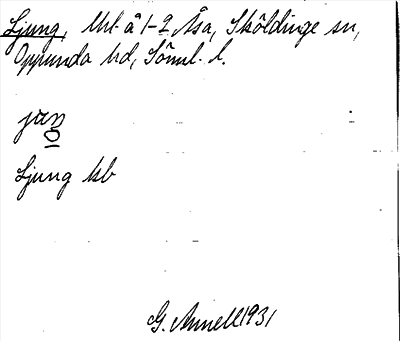 Ljung, lht å 1-2 Åsa, Sköldinge sn,
Oppunda hd, Söml. l.
jɷŋ
Ljung kb
G. Annell 1931